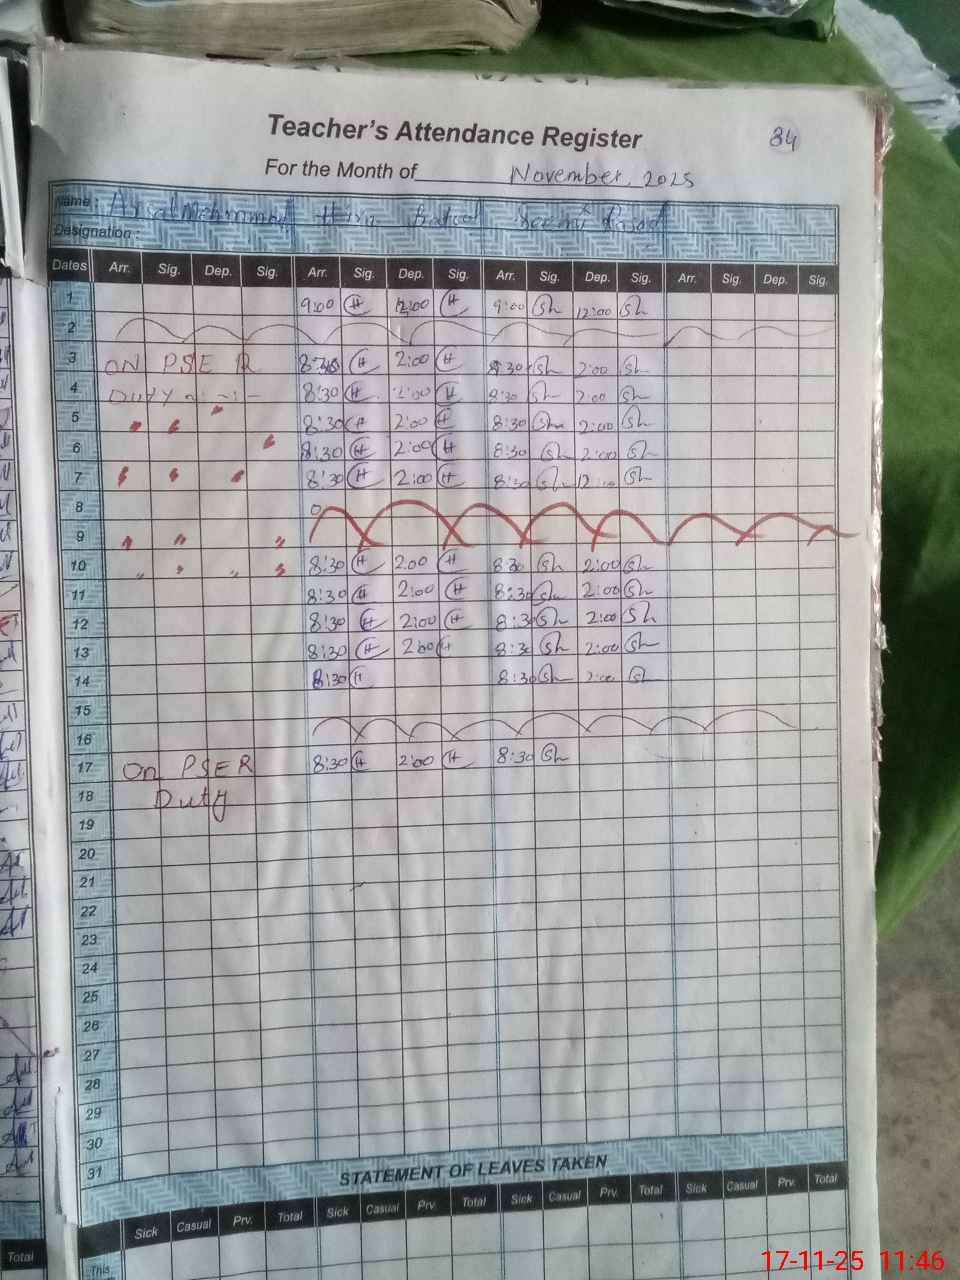 Teacher's Attendance Register 34
For the Month of November, 2025
Name : Arsal Mohmmad Hira Batool Rasool
Designation :
Dates Arr. Sig. Dep. Sig. Arr. Sig. Dep. Sig. Arr. Sig. Dep. Sig. Arr. Sig. Dep. Sig.
1 9:00 H 12:00 H 9:00 Sh 12:00 Sh
2
3 ON PSER 8:30 H 2:00 H 8:30 Sh 2:00 Sh
4 DUTY 8:30 H 2:00 H 8:30 Sh 2:00 Sh
5 " " " 8:30 H 2:00 H 8:30 Sh 2:00 Sh
6 " 8:30 H 2:00 H 8:30 Sh 2:00 Sh
7 " " " 8:30 H 2:00 H 8:30 Sh Sh
8
9 " " "
10 " " " " 8:30 H 2:00 H 8:30 Sh 2:00 Sh
11 8:30 H 2:00 H 8:30 Sh 2:00 Sh
12 8:30 H 2:00 H 8:30 Sh 2:00 Sh
13 8:30 H 200 H 8:30 Sh 2:00 Sh
14 8:30 H 8:30 Sh 2:00 Sh
15
16
17 On PSER 8:30 H 2:00 H 8:30 Sh
18 Duty
19
20
21
22
23
24
25
26
27
28
29
30
31
STATEMENT OF LEAVES TAKEN
Sick Casual Prv. Total Sick Casual Prv. Total Sick Casual Prv. Total Sick Casual Prv. Total
Total This
17-11-25 11:46